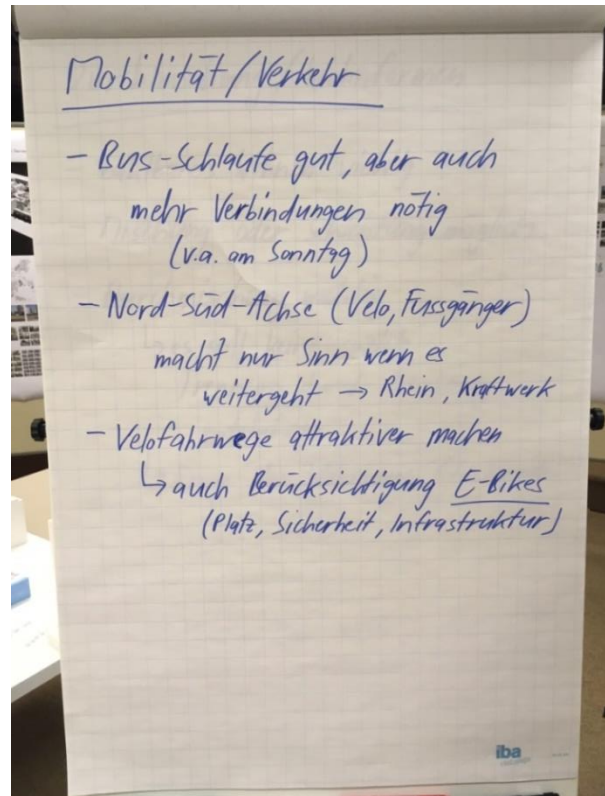 Mobilität/Verkehr
- Bus-Schlaufe gut, aber auch
mehr Verbindungen nötig
(v.a. am Sonntag)
- Nord-Süd-Achse (Velo, Fussgänger)
macht nur Sinn wenn es
weitergeht → Rhein, Kraftwerk
- Velofahrwege attraktiver machen
↳ auch Berücksichtigung E-Bikes
(Platz, Sicherheit, Infrastruktur)
iba